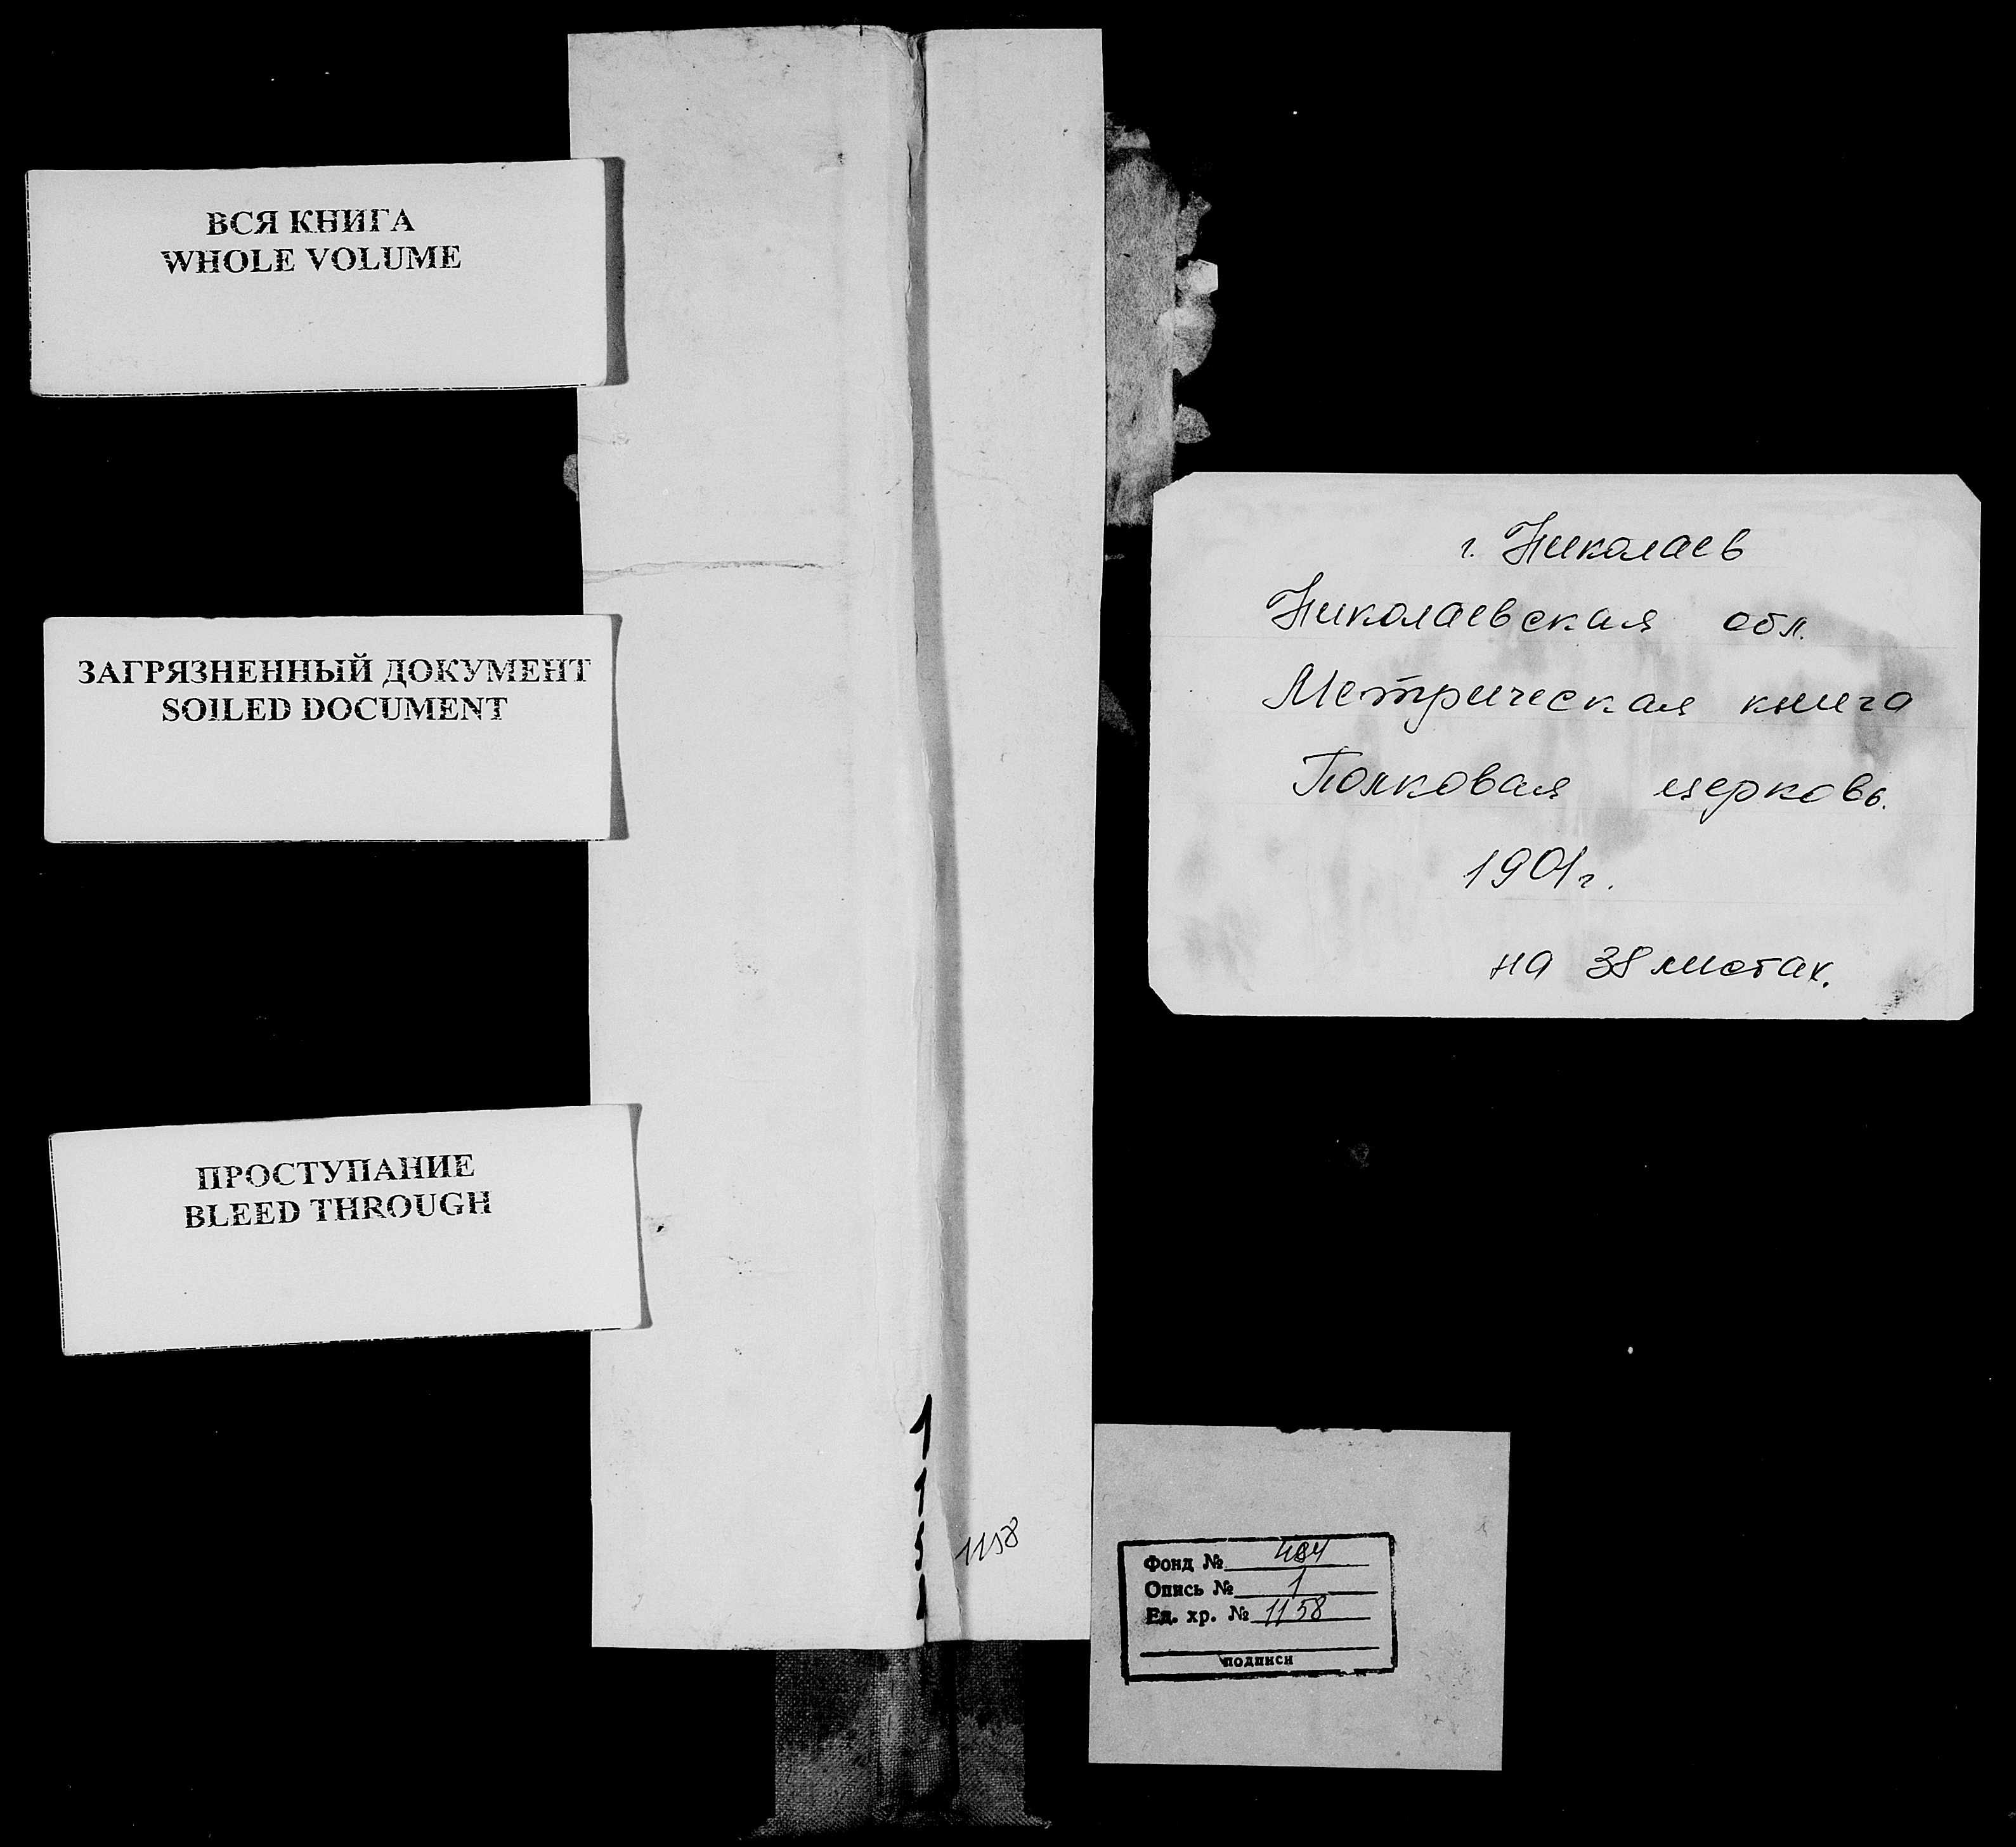 ВСЯ КНИГА
WHOLE VOLUME
ЗАГРЯЗНЕННЫЙ ДОКУМЕНТ
SOILED DOCUMENT
ПРОСТУПАНИЕ
BLEED THROUGH
г. Николаев
Николаевская обл.
Метрическая книга
Полковая церковь.
1901г.
на 38 листах.
1158
Фонд № 484
Опись № 1
Ед. хр. № 1158
подписи